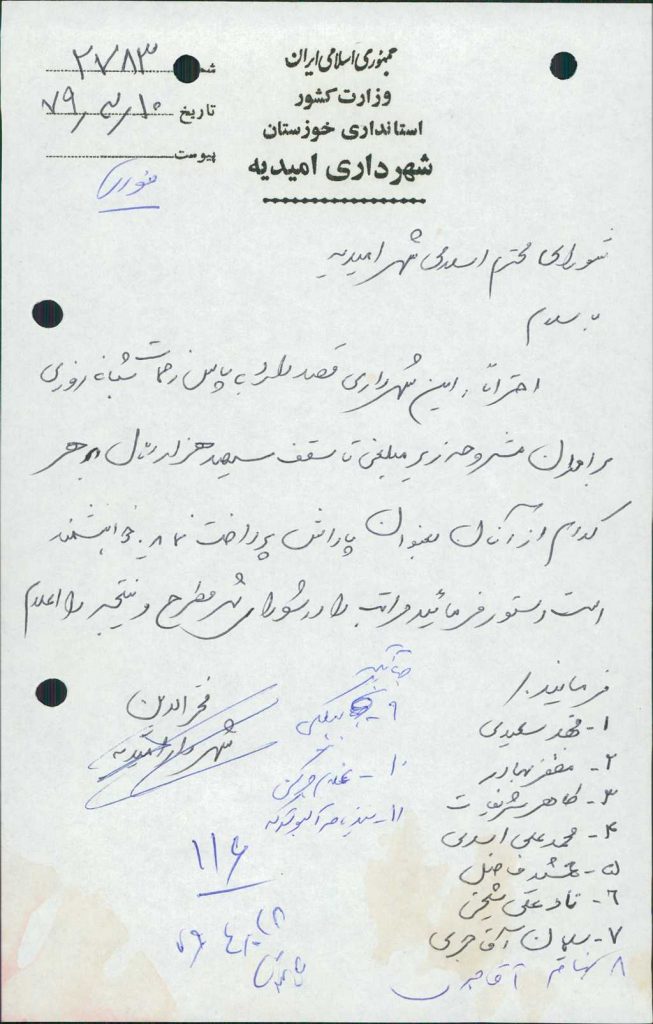 جمهوری اسلامی ایران
وزارت کشور
استانداری خوزستان
شهرداری امیدیه
شماره ۲۷۸۳
تاریخ ۷۹/۳/۱۰
پیوست
فوری
شورای محترم اسلامی شهر امیدیه
با سلام
احتراماً، این شهرداری قصد دارد به پاس زحمات شبانه روزی
برادران مشروحه زیر مبلغی تا سقف سیصد هزار ریال به هر
کدام از آنان بعنوان پاداش پرداخت نماید. خواهشمند
است دستور فرمائید مراتب را در شورای شهر مطرح و نتیجه را اعلام
فرمایند./
۱- محمد سعیدی
۲- مظفر بهادر
۳- طاهر شریفات
۴- محمد علی اسدی
۵- جمشید فاضل
۶- شیخی
۷- سلیمان آقاجری
۸ بهنام آقاجری
۹-
۱۰- غلام
۱۱-
فخرالدین
شهردار امیدیه
۱۱۶